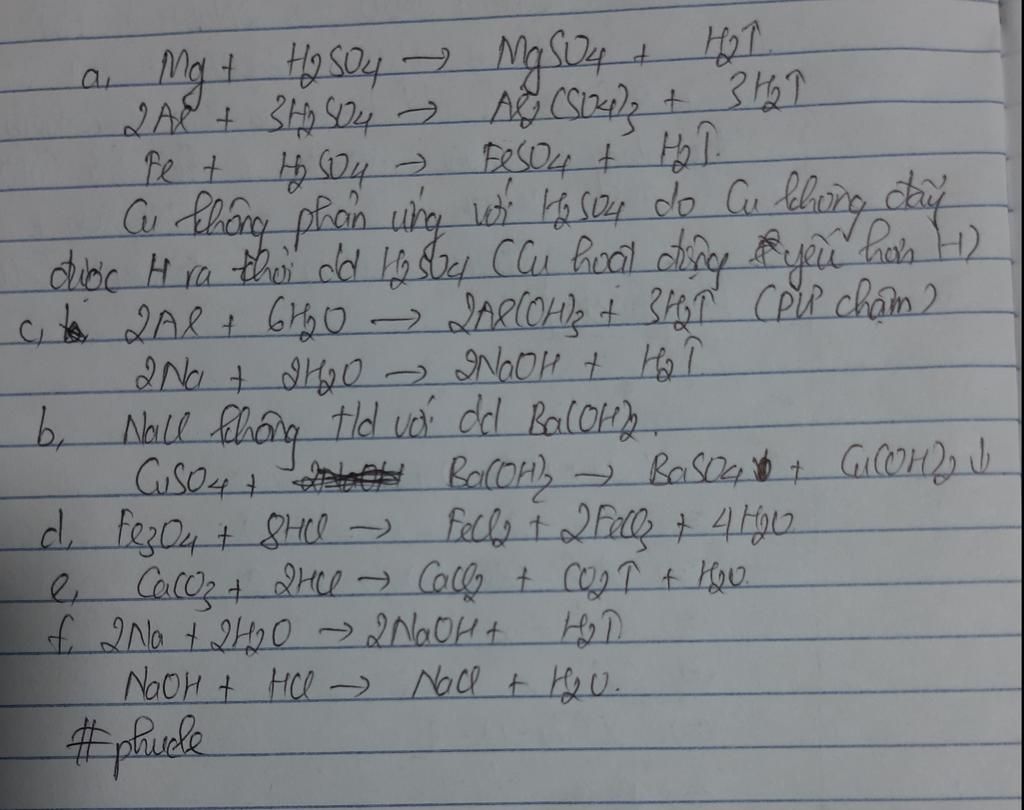 a, Mg + H2SO4 → MgSO4 + H2↑
2Al + 3H2SO4 → Al2(SO4)3 + 3H2↑
Fe + H2SO4 → FeSO4 + H2↑.
Cu không phản ứng với H2SO4 do Cu không đẩy
được H ra khỏi dd H2SO4 (Cu hoạt động yếu hơn H)
c, 2Al + 6H2O → 2Al(OH)3 + 3H2↑ (PƯ chậm)
2Na + 2H2O → 2NaOH + H2↑
b, NaCl không t/d với dd Ba(OH)2.
CuSO4 + Ba(OH)2 → BaSO4↓ + Cu(OH)2↓
d, Fe3O4 + 8HCl → FeCl2 + 2FeCl3 + 4H2O
e, CaCO3 + 2HCl → CaCl2 + CO2↑ + H2O.
f, 2Na + 2H2O → 2NaOH + H2↑
NaOH + HCl → NaCl + H2O.
#phucle